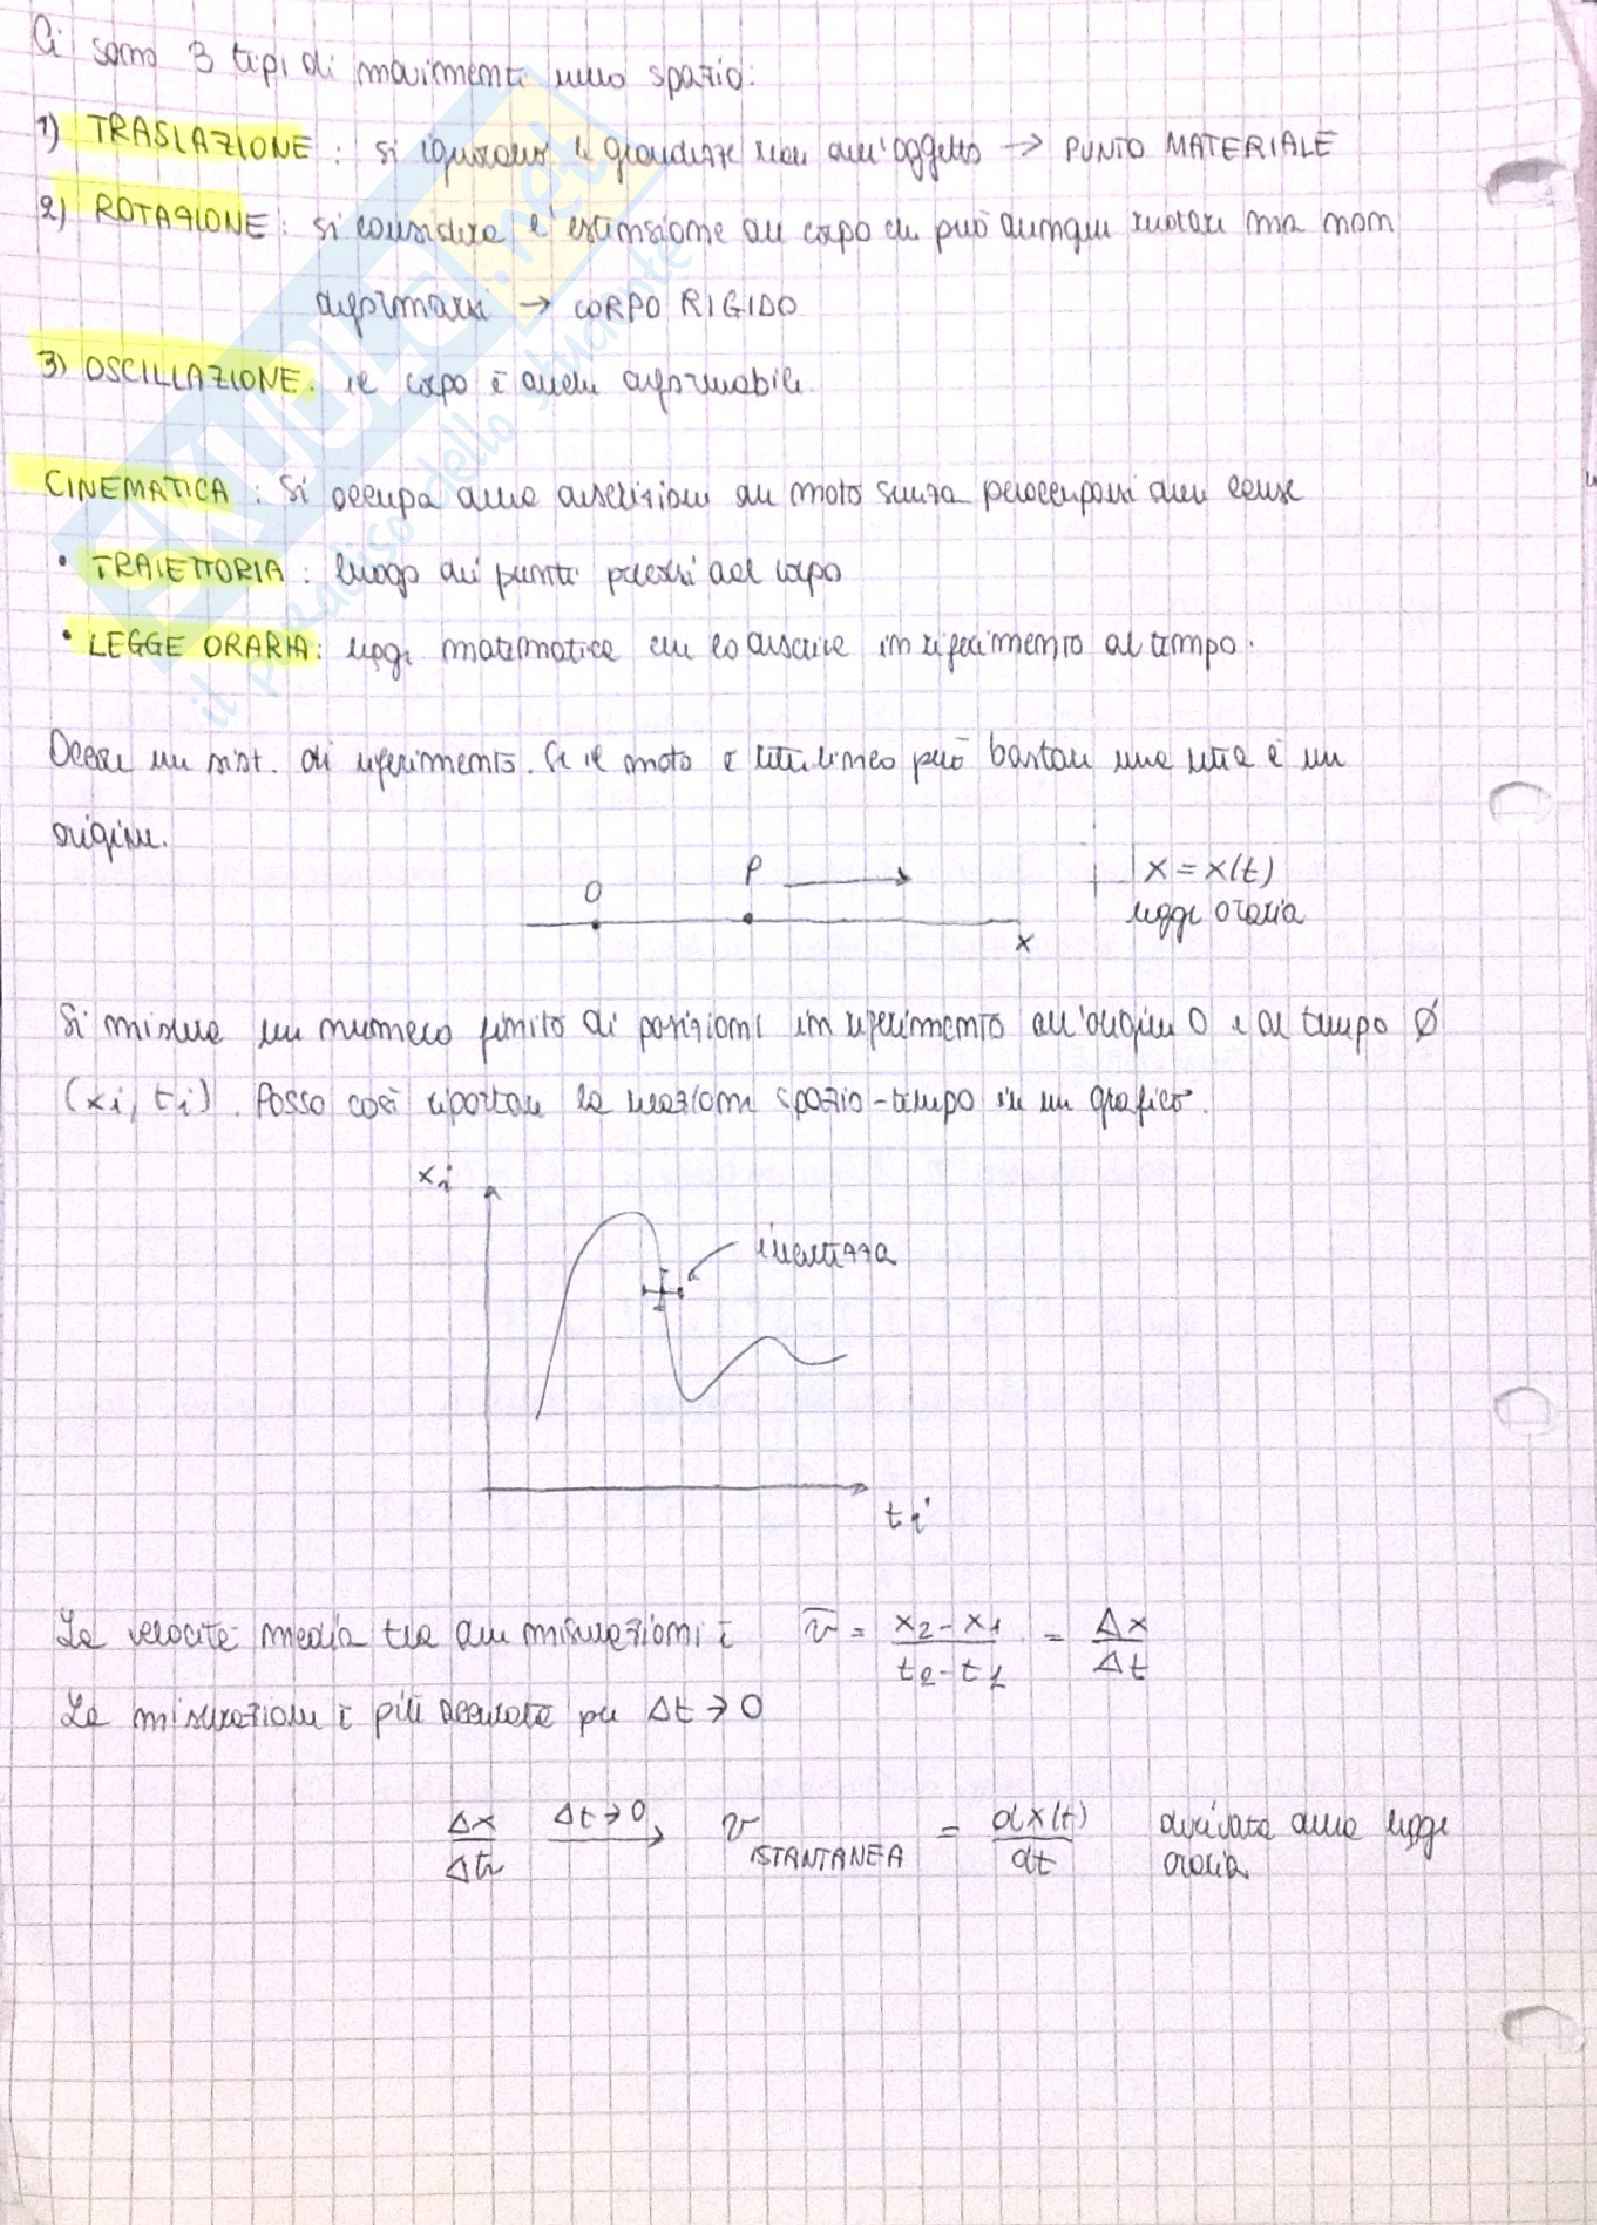 Ci sono 3 tipi di movimenti nello spazio:
1) TRASLAZIONE : si ignorano le grandezze reali dell'oggetto → PUNTO MATERIALE
2) ROTAZIONE : si considera l'estensione del corpo che può dunque ruotare ma non
deformarsi → CORPO RIGIDO
3) OSCILLAZIONE. il corpo è anche deformabile.
CINEMATICA : Si occupa della descrizione del moto senza preoccuparsi delle cause
• TRAIETTORIA : luogo dei punti percorsi dal corpo
• LEGGE ORARIA : legge matematica che lo descrive in riferimento al tempo.
un sist. di riferimento. Se il moto è rettilineo può bastare una retta e un
origine.
O P x
x = x(t)
legge oraria
Si misura un numero finito di posizioni in riferimento all'origine O e al tempo Ø
(xi, ti). Posso così riportare la relazione spazio-tempo in un grafico.
xi
incertezza
ti
La velocità media tra due misurazioni è v̄ = (x2 - x1)/(t2 - t1) = Δx/Δt
La misurazione è più accurata per Δt → 0
Δx/Δt Δt→0 → v ISTANTANEA = dx(t)/dt derivata della legge
oraria
SKUOLA.net
il paradiso dello studente